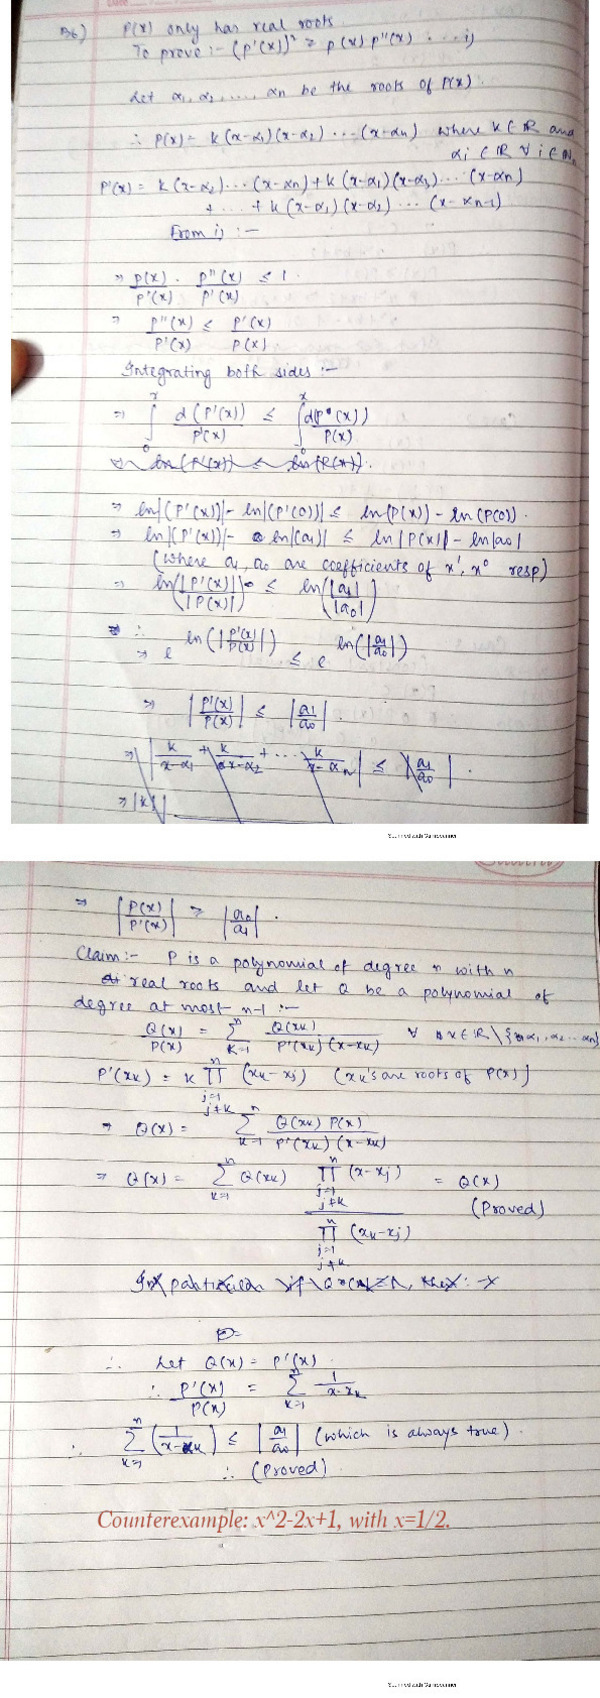 B6) P(x) only has real roots.
To prove :- (P'(x))² ≥ p(x) p''(x) ... i)
Let α₁, α₂, ..., αn be the roots of P(x).
∴ P(x) = k(x-α₁)(x-α₂) ... (x-αn) where k ∈ ℝ and
αi ∈ ℝ ∀ i ∈ ℕn
P'(x) = k(x-α₂)...(x-αn) + k(x-α₁)(x-α₃)...(x-αn)
+ ... + k(x-α₁)(x-α₂) ... (x-αn-1)
From i) :-
⇒ p(x)/p'(x) · p''(x)/p'(x) ≤ 1.
⇒ p''(x)/p'(x) ≤ p'(x)/p(x)
Integrating both sides :-
⇒ ∫₀ˣ d(P'(x))/P'(x) ≤ ∫₀ˣ d(P(x))/P(x)
⇒ ln(P'(x)) ≤ ln(P(x)).
⇒ ln|(P'(x))| - ln|(P'(0))| ≤ ln(P(x)) - ln(P(0)).
⇒ ln|(P'(x))| - ln|(a₁)| ≤ ln|P(x)| - ln|a₀|
(where a₁, a₀ are coefficients of x¹, x⁰ resp)
⇒ ln(|P'(x)|/|P(x)|) ≤ ln(|a₁|/|a₀|)
∴
⇒ e^ln(|P'(x)/P(x)|) ≤ e^ln(|a₁/a₀|)
⇒ |P'(x)/P(x)| ≤ |a₁/a₀|.
⇒ |k/(x-α₁) + k/(x-α₂) + ... k/(x-αn)| ≤ |a₁/a₀|.
⇒ |k|
⇒ |P(x)/P'(x)| ≥ |a₀/a₁|.
Claim :- P is a polynomial of degree n with n
real roots and let Q be a polynomial of
degree at most n-1 :-
Q(x)/P(x) = Σ_{k=1}^{n} Q(xk)/(P'(xk)(x-xk)) ∀ x ∈ ℝ\{α₁, α₂...αn}
P'(xk) = k ∏_{j=1, j≠k}^{n} (xk-xj) (xk's are roots of P(x))
⇒ Q(x) = Σ_{k=1}^{n} Q(xk) P(x)/(P'(xk)(x-xk))
⇒ Q(x) = Σ_{k=1}^{n} Q(xk) ∏_{j=1, j≠k}^{n} (x-xj) / ∏_{j=1, j≠k}^{n} (xk-xj) = Q(x)
(Proved)
∴ Let Q(x) = P'(x)
∴ P'(x)/P(x) = Σ_{k=1}^{n} 1/(x-xk)
∴ Σ_{k=1}^{n} (1/(x-xk)) ≤ |a₁/a₀| (which is always true).
∴ (Proved)
Counterexample: x^2-2x+1, with x=1/2.